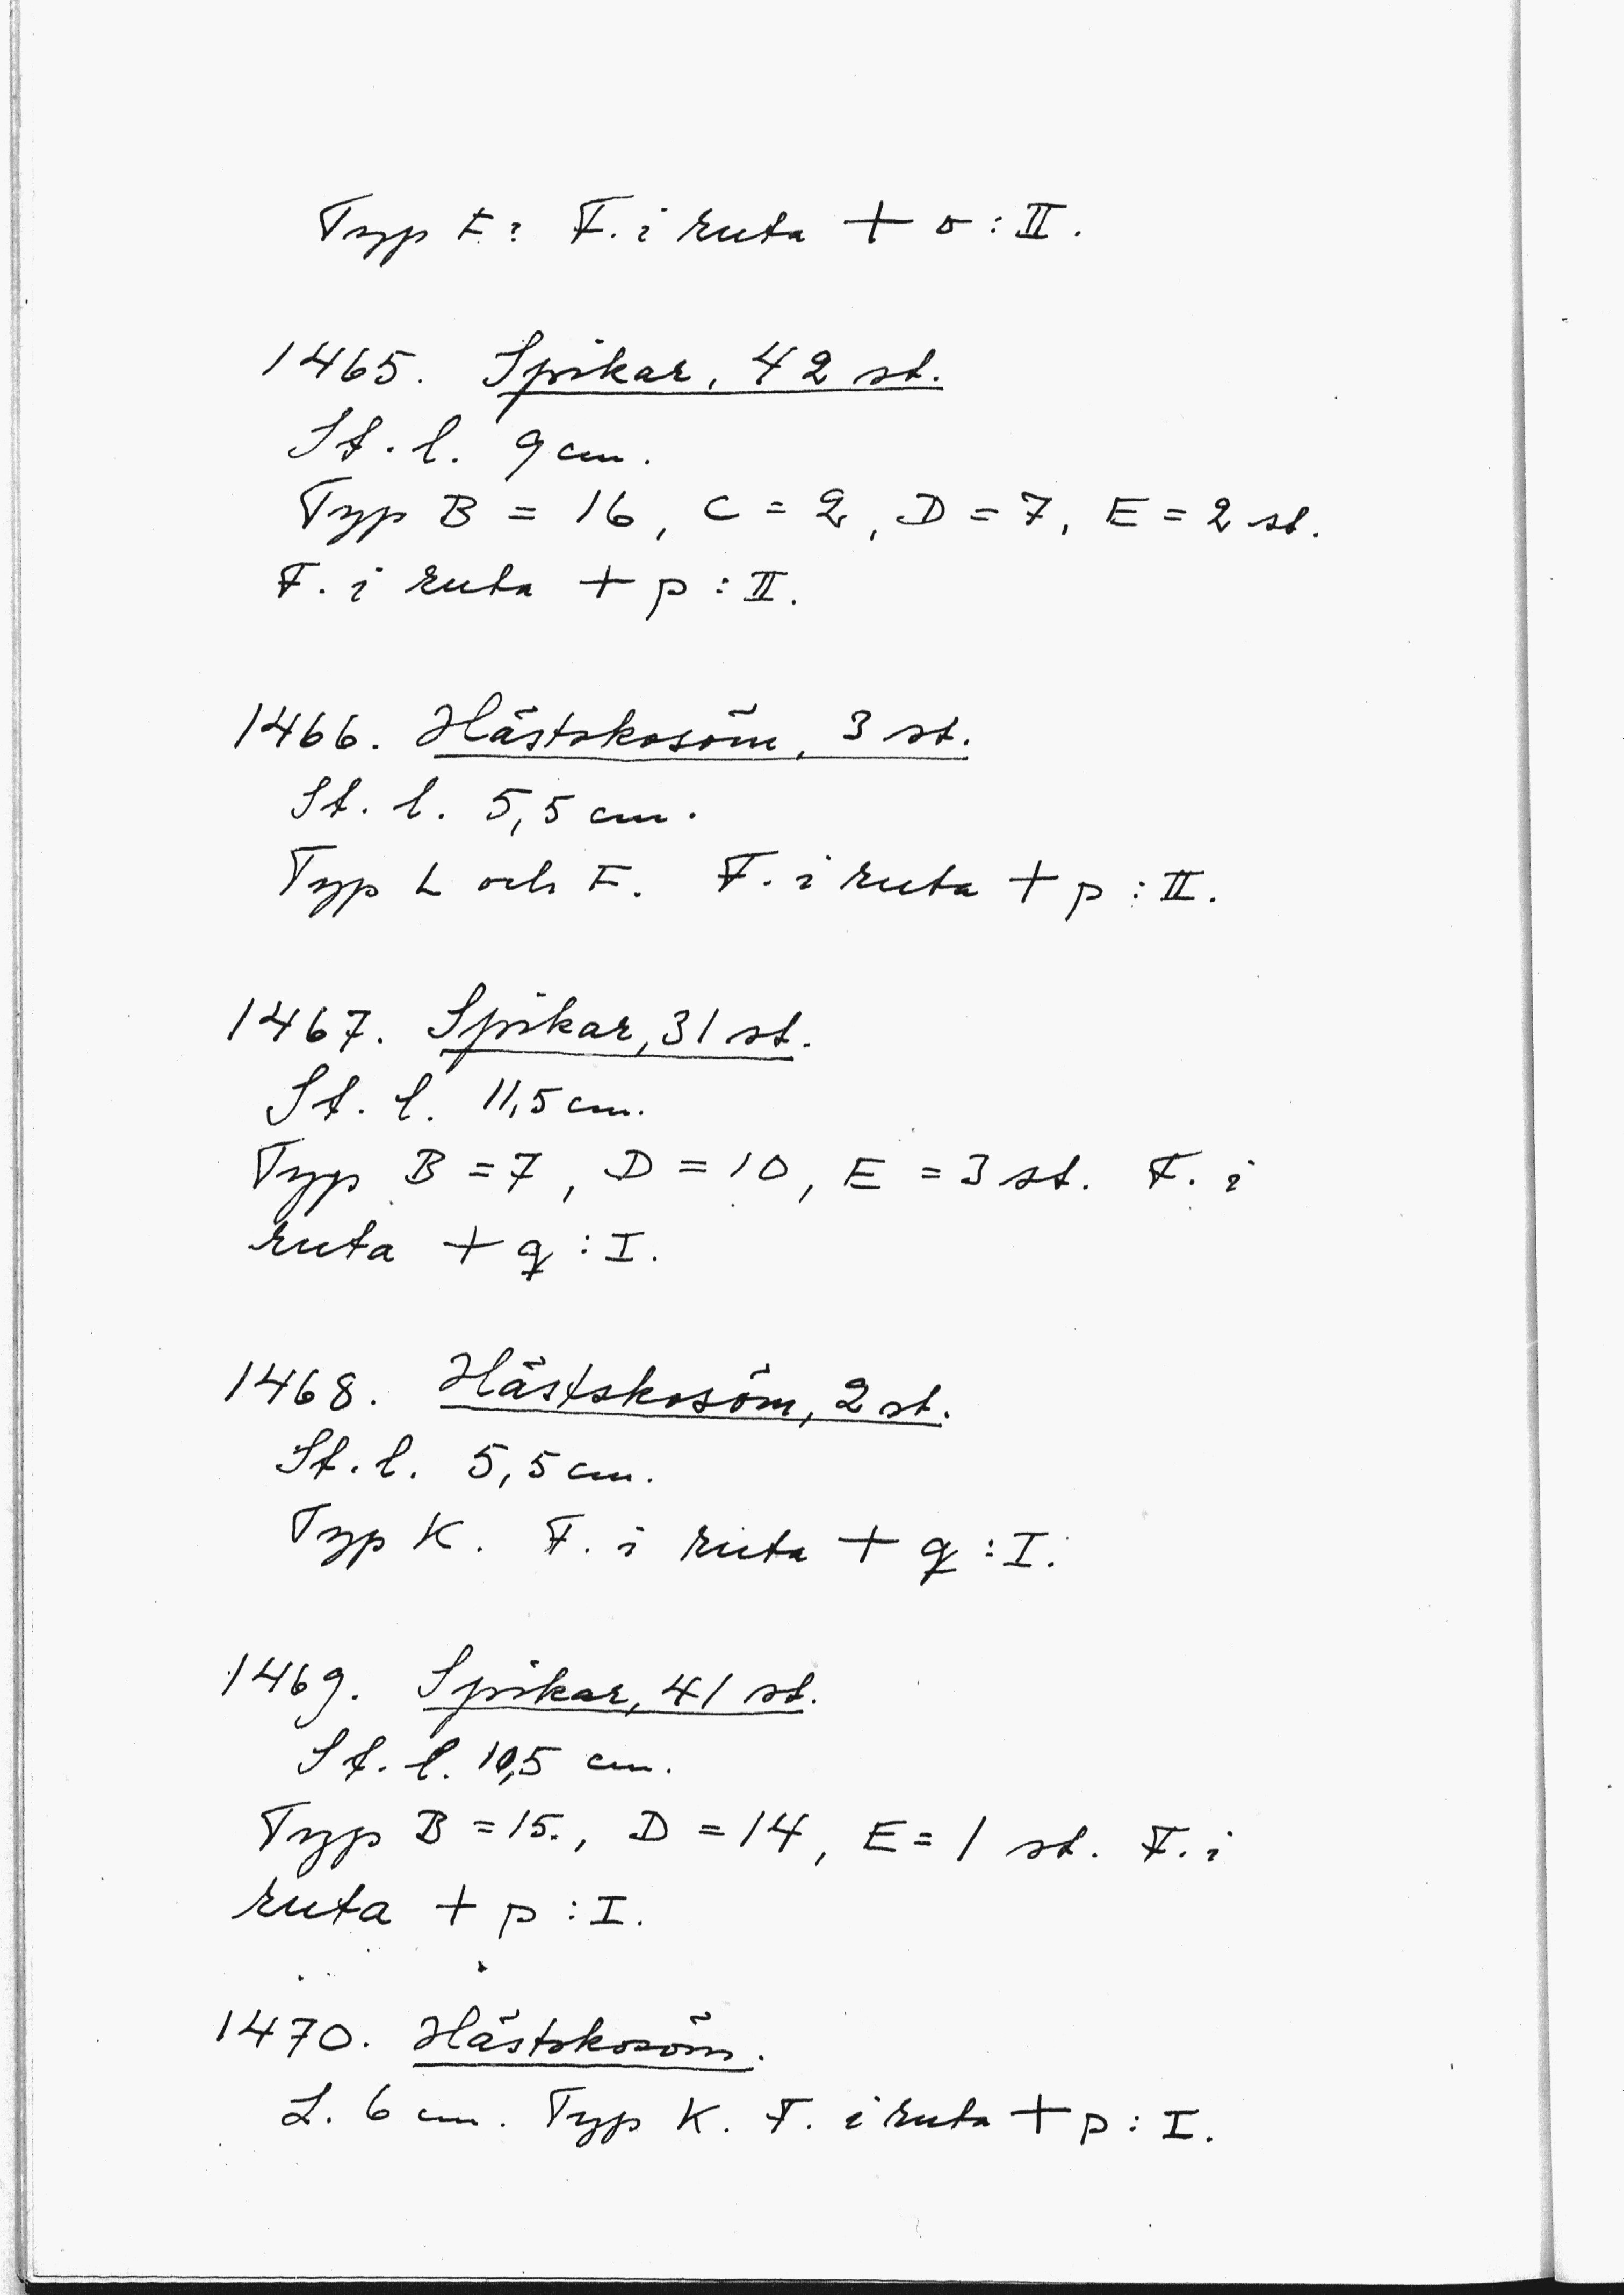 Typ F? F. i ruta + o : II.
1465. Spikar, 42 st.
St. l. 9 cm.
Typ B = 16, C = 2, D = 7, E = 2 st.
F. i ruta + p : II.
1466. Hästskosöm, 3 st.
St. l. 5,5 cm.
Typ L och F. F. i ruta + p : II.
1467. Spikar, 31 st.
St. l. 11,5 cm.
Typ B = 7, D = 10, E = 3 st. F. i
ruta + q : I.
1468. Hästskosöm, 2 st.
St. l. 5,5 cm.
Typ K. F. i ruta + q : I.
1469. Spikar, 41 st.
St. l. 10,5 cm.
Typ B = 15., D = 14, E = 1 st. F. i
ruta + p : I.
1470. Hästskosöm.
L. 6 cm. Typ K. F. i ruta + p : I.